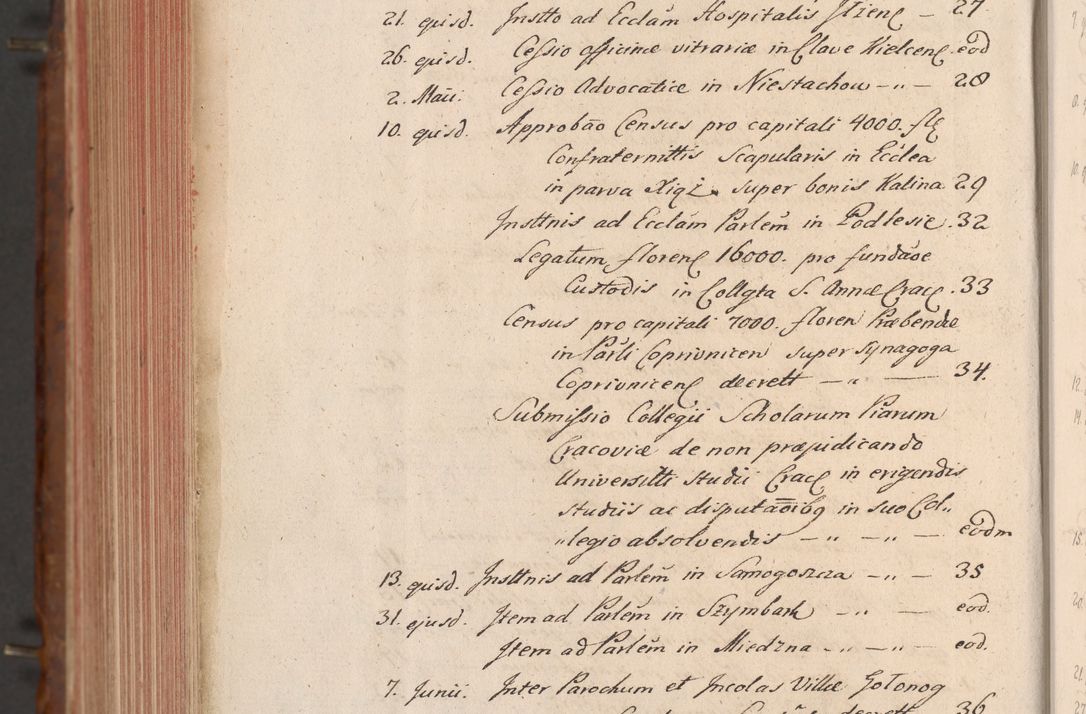 21. ejusd. Insttō ad Ecclãm Hospitalis Ilzenę — 27
26. ejusd. Cessio officinæ vitrariæ in Clave Kielcenę. eod
2. Maii. Cessio Advocatiæ in Niestachow — „ — 28
10. ejusd. Approbāo Census pro capitali 4000. flę
Confraternittis Scapularis in Ecclea
in parva Xiąż. super bonis Kalina 29
Insttnis ad Ecclãm Parlẽm in Podlesie. 32
Legatum florenę 16000. pro fundãoe
Custodis in Collgta S. Annæ Cracę. 33
Census pro capitali 7000. floren Præbendæ
in Parli Coprivnicen super Synagoga
Coprivnicenę decrett — „ — 34.
Submissio Collegii Scholarum Piarum
Cracoviæ de non præjudicando
Universitti Studii Cracę in erigendis
studiis ac disputāōibg in suo Col„
„legio absolvendis — „ — „ — eodm
13. ejusd. Insttnis ad Parlẽm in Samogoszcza — „ — 35
31. ejusd. Item ad Parlẽm in Szymbark — „ — eod.
Item ad Parlẽm in Miedzna — „ — „ — eod.
7. Junii. Inter Parochum et Incolas Villæ Gołonog
decrett 36